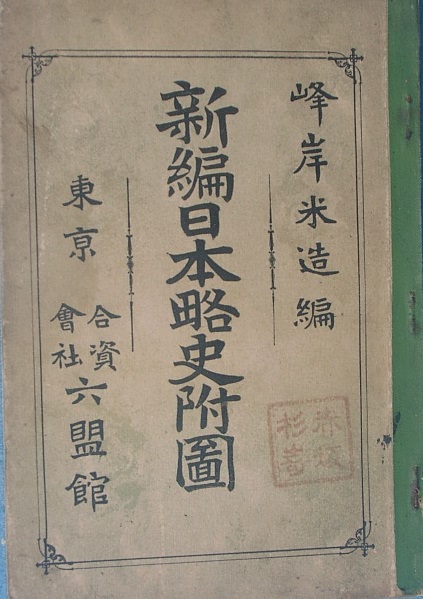 峰岸米造編
新編日本略史附圖
東京 合資會社 六盟館